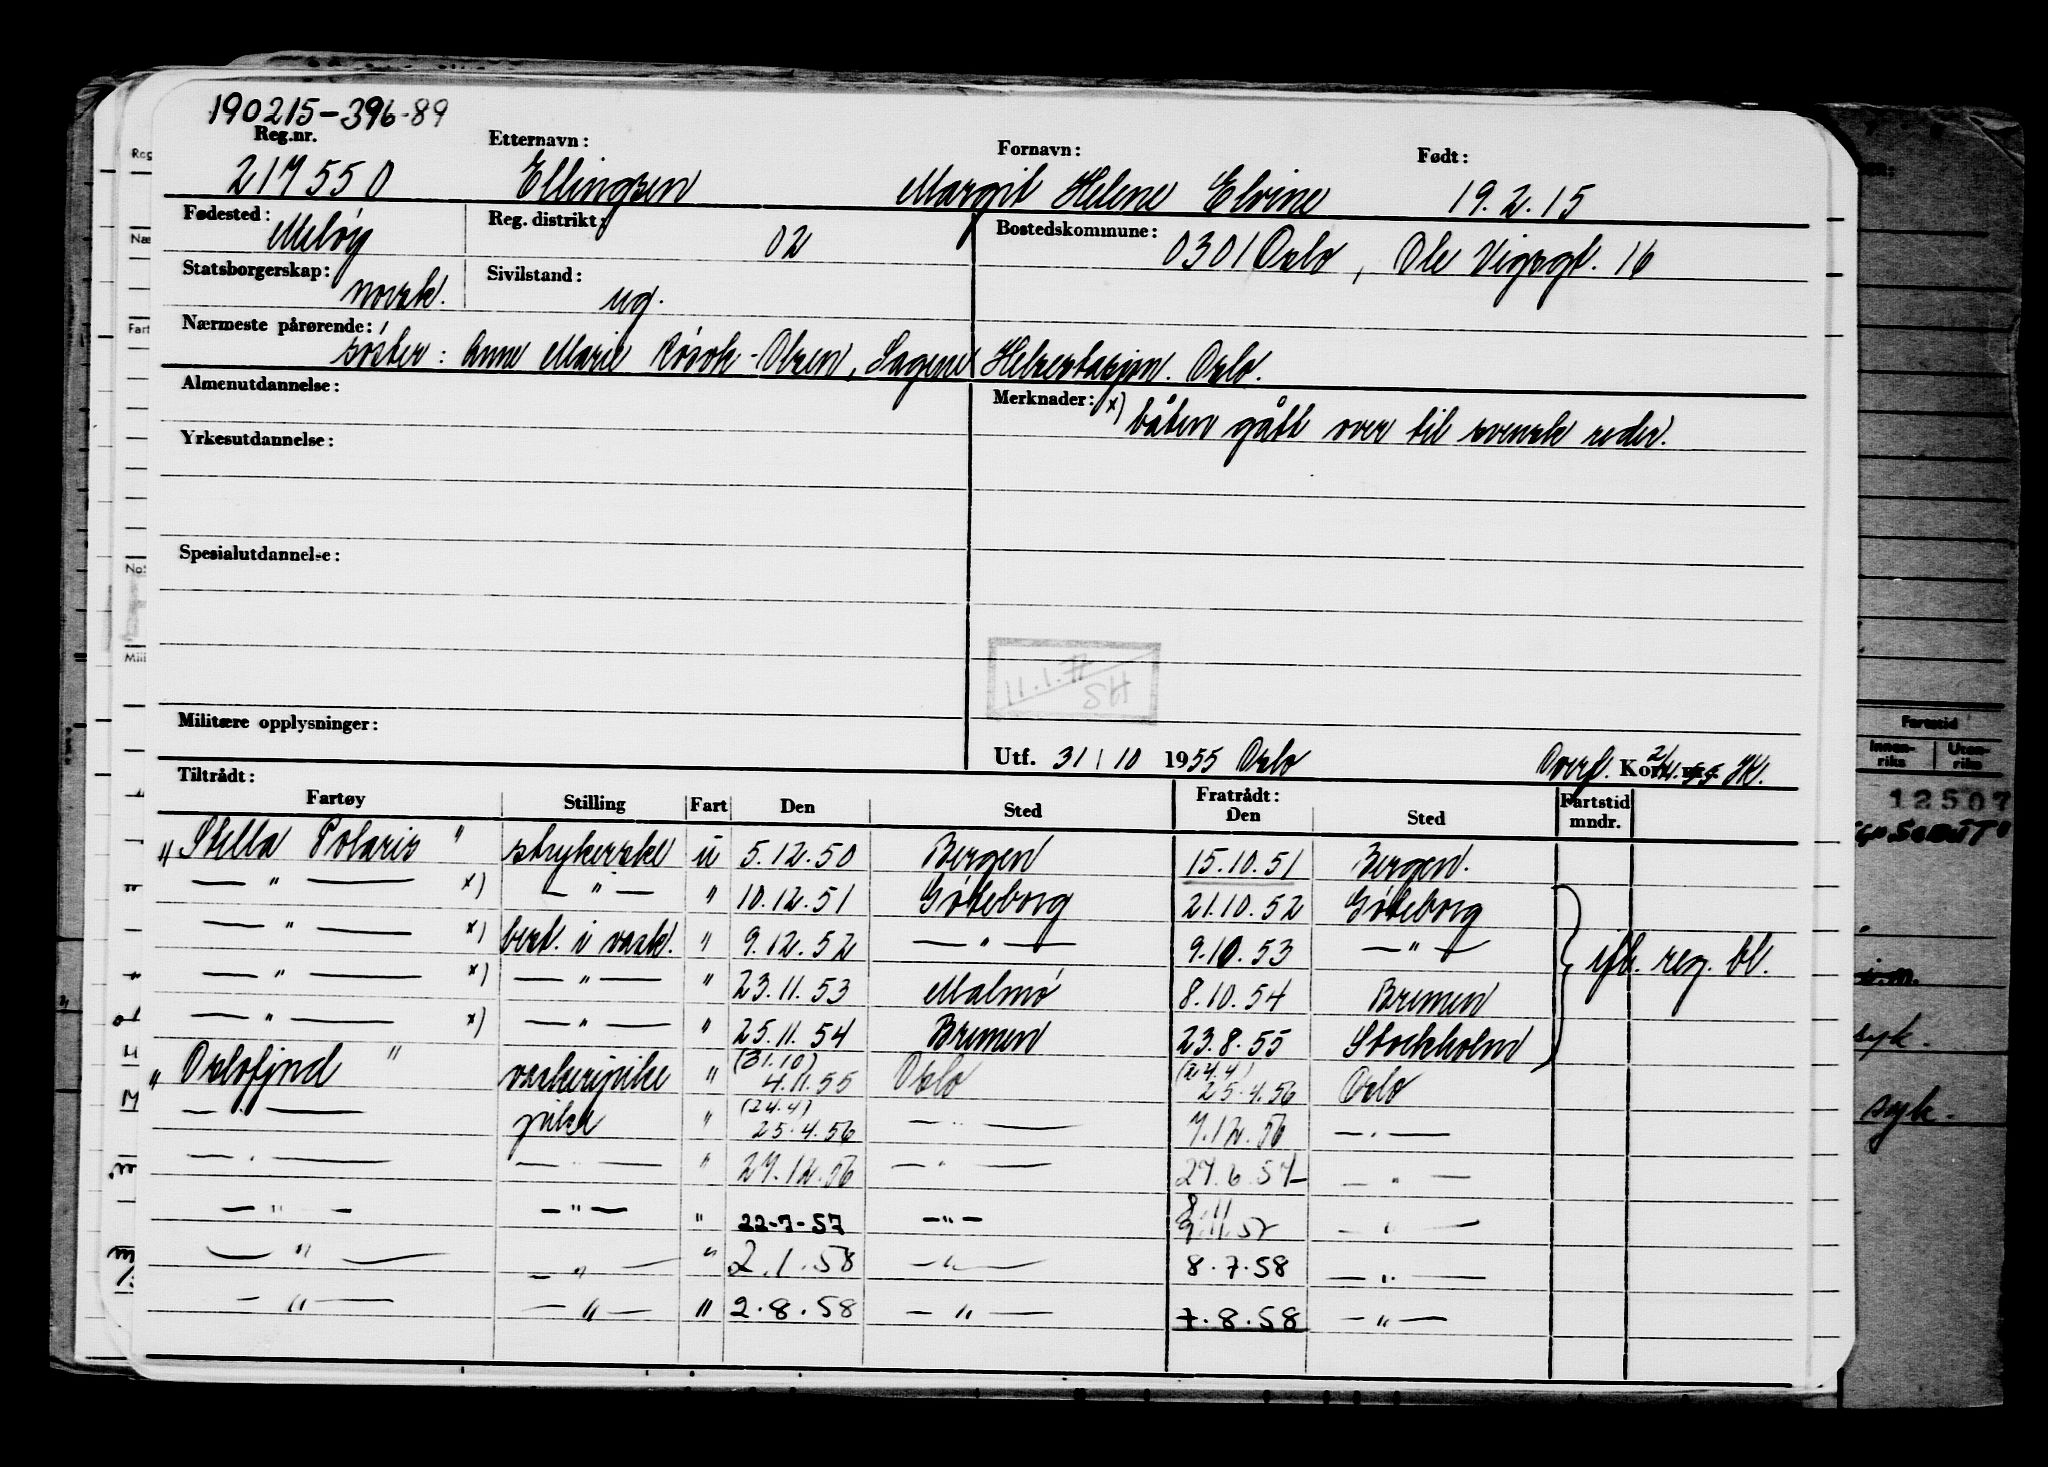 190215-396-89
Reg.nr. Etternavn: Fornavn: Født:
217550 Ellingsen Margit Helene Elvine 19.2.15
Fødested: Meløy Reg. distrikt: 02 Bostedskommune: 0301 Oslo, Ole Vigsgt. 16
Statsborgerskap: norsk. Sivilstand: ug.
Nærmeste pårørende:
søster: Anne Marie Olsen, Sagene Helsestasjon. Oslo.
Almenutdannelse: Merknader: x) båten gått over til svensk reder.
Yrkesutdannelse:
Spesialutdannelse:
11.1.77
SH
Militære opplysninger:
Utf. 31/10 1955 Oslo Overf. Kort nr.
Tiltrådt: Fratrådt:
Fartøy Stilling Fart Den Sted Den Sted Fartstid mndr.
"Stella Polaris" strykerske u 5.12.50 Bergen 15.10.51 Bergen.
— " — x) — " — " 10.12.51 Gøteborg 21.10.52 Gøteborg
— " — x) best. i vask. " 9.12.52 — " — 9.10.53 — " — iflg. reg. bl.
— " — x) — " — " 23.11.53 Malmø 8.10.54 Bremen
— " — x) — " — " 25.11.54 Bremen 23.8.55 Stockholm
"Oslofjord" vaskeripike " (31.10) 4.11.55 Oslo (24.4) 25.4.56 Oslo
— " — pike " (24.4) 25.4.56 — " — 7.12.56 — " —
— " — — " — " 27.12.56 — " — 27.6.57 — " —
— " — — " — " 22-7-57 — " — 8.11 9.11.57 — " —
— " — — " — " 2.1.58 — " — 8.7.58 — " —
— " — — " — " 2.8.58 — " — 7.8.58 — " —
Fartstid
Innenriks Utenriks
12507
syk.
syk.